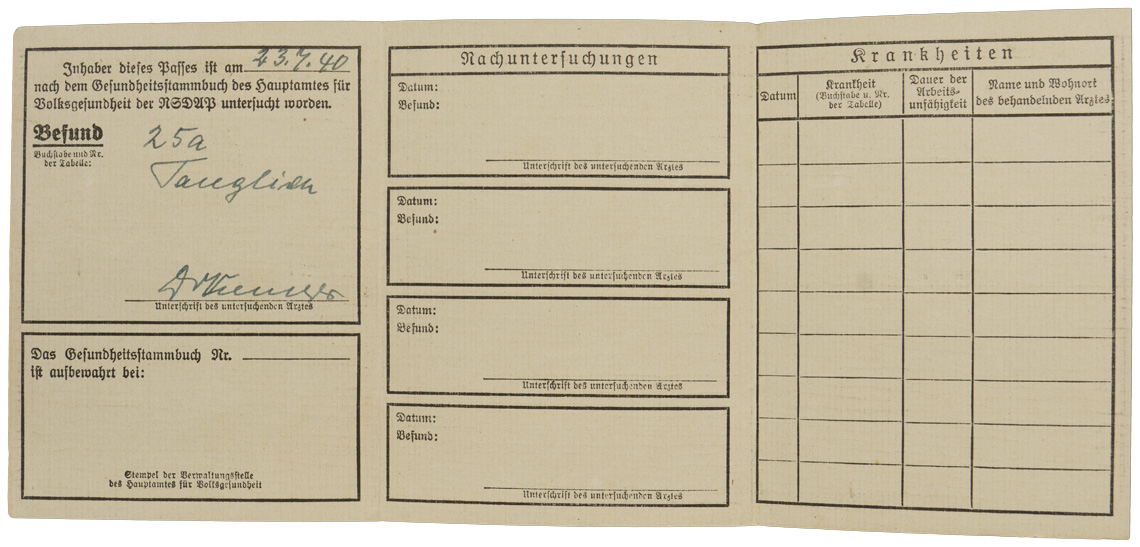 Inhaber dieses Passes ist am 23.7.40
nach dem Gesundheitsstammbuch des Hauptamtes für
Volksgesundheit der NSDAP untersucht worden.
Befund
Buchstabe und Nr.
der Tabelle:
25a
Tauglich
Unterschrift des untersuchenden Arztes
Das Gesundheitsstammbuch Nr.
ist aufbewahrt bei:
Stempel der Verwaltungsstelle
des Hauptamtes für Volksgesundheit
Nachuntersuchungen
Datum:
Befund:
Unterschrift des untersuchenden Arztes
Datum:
Befund:
Unterschrift des untersuchenden Arztes
Datum:
Befund:
Unterschrift des untersuchenden Arztes
Datum:
Befund:
Unterschrift des untersuchenden Arztes
Krankheiten
Datum
Krankheit
(Buchstabe u. Nr.
der Tabelle)
Dauer der
Arbeits-
unfähigkeit
Name und Wohnort
des behandelnden Arztes